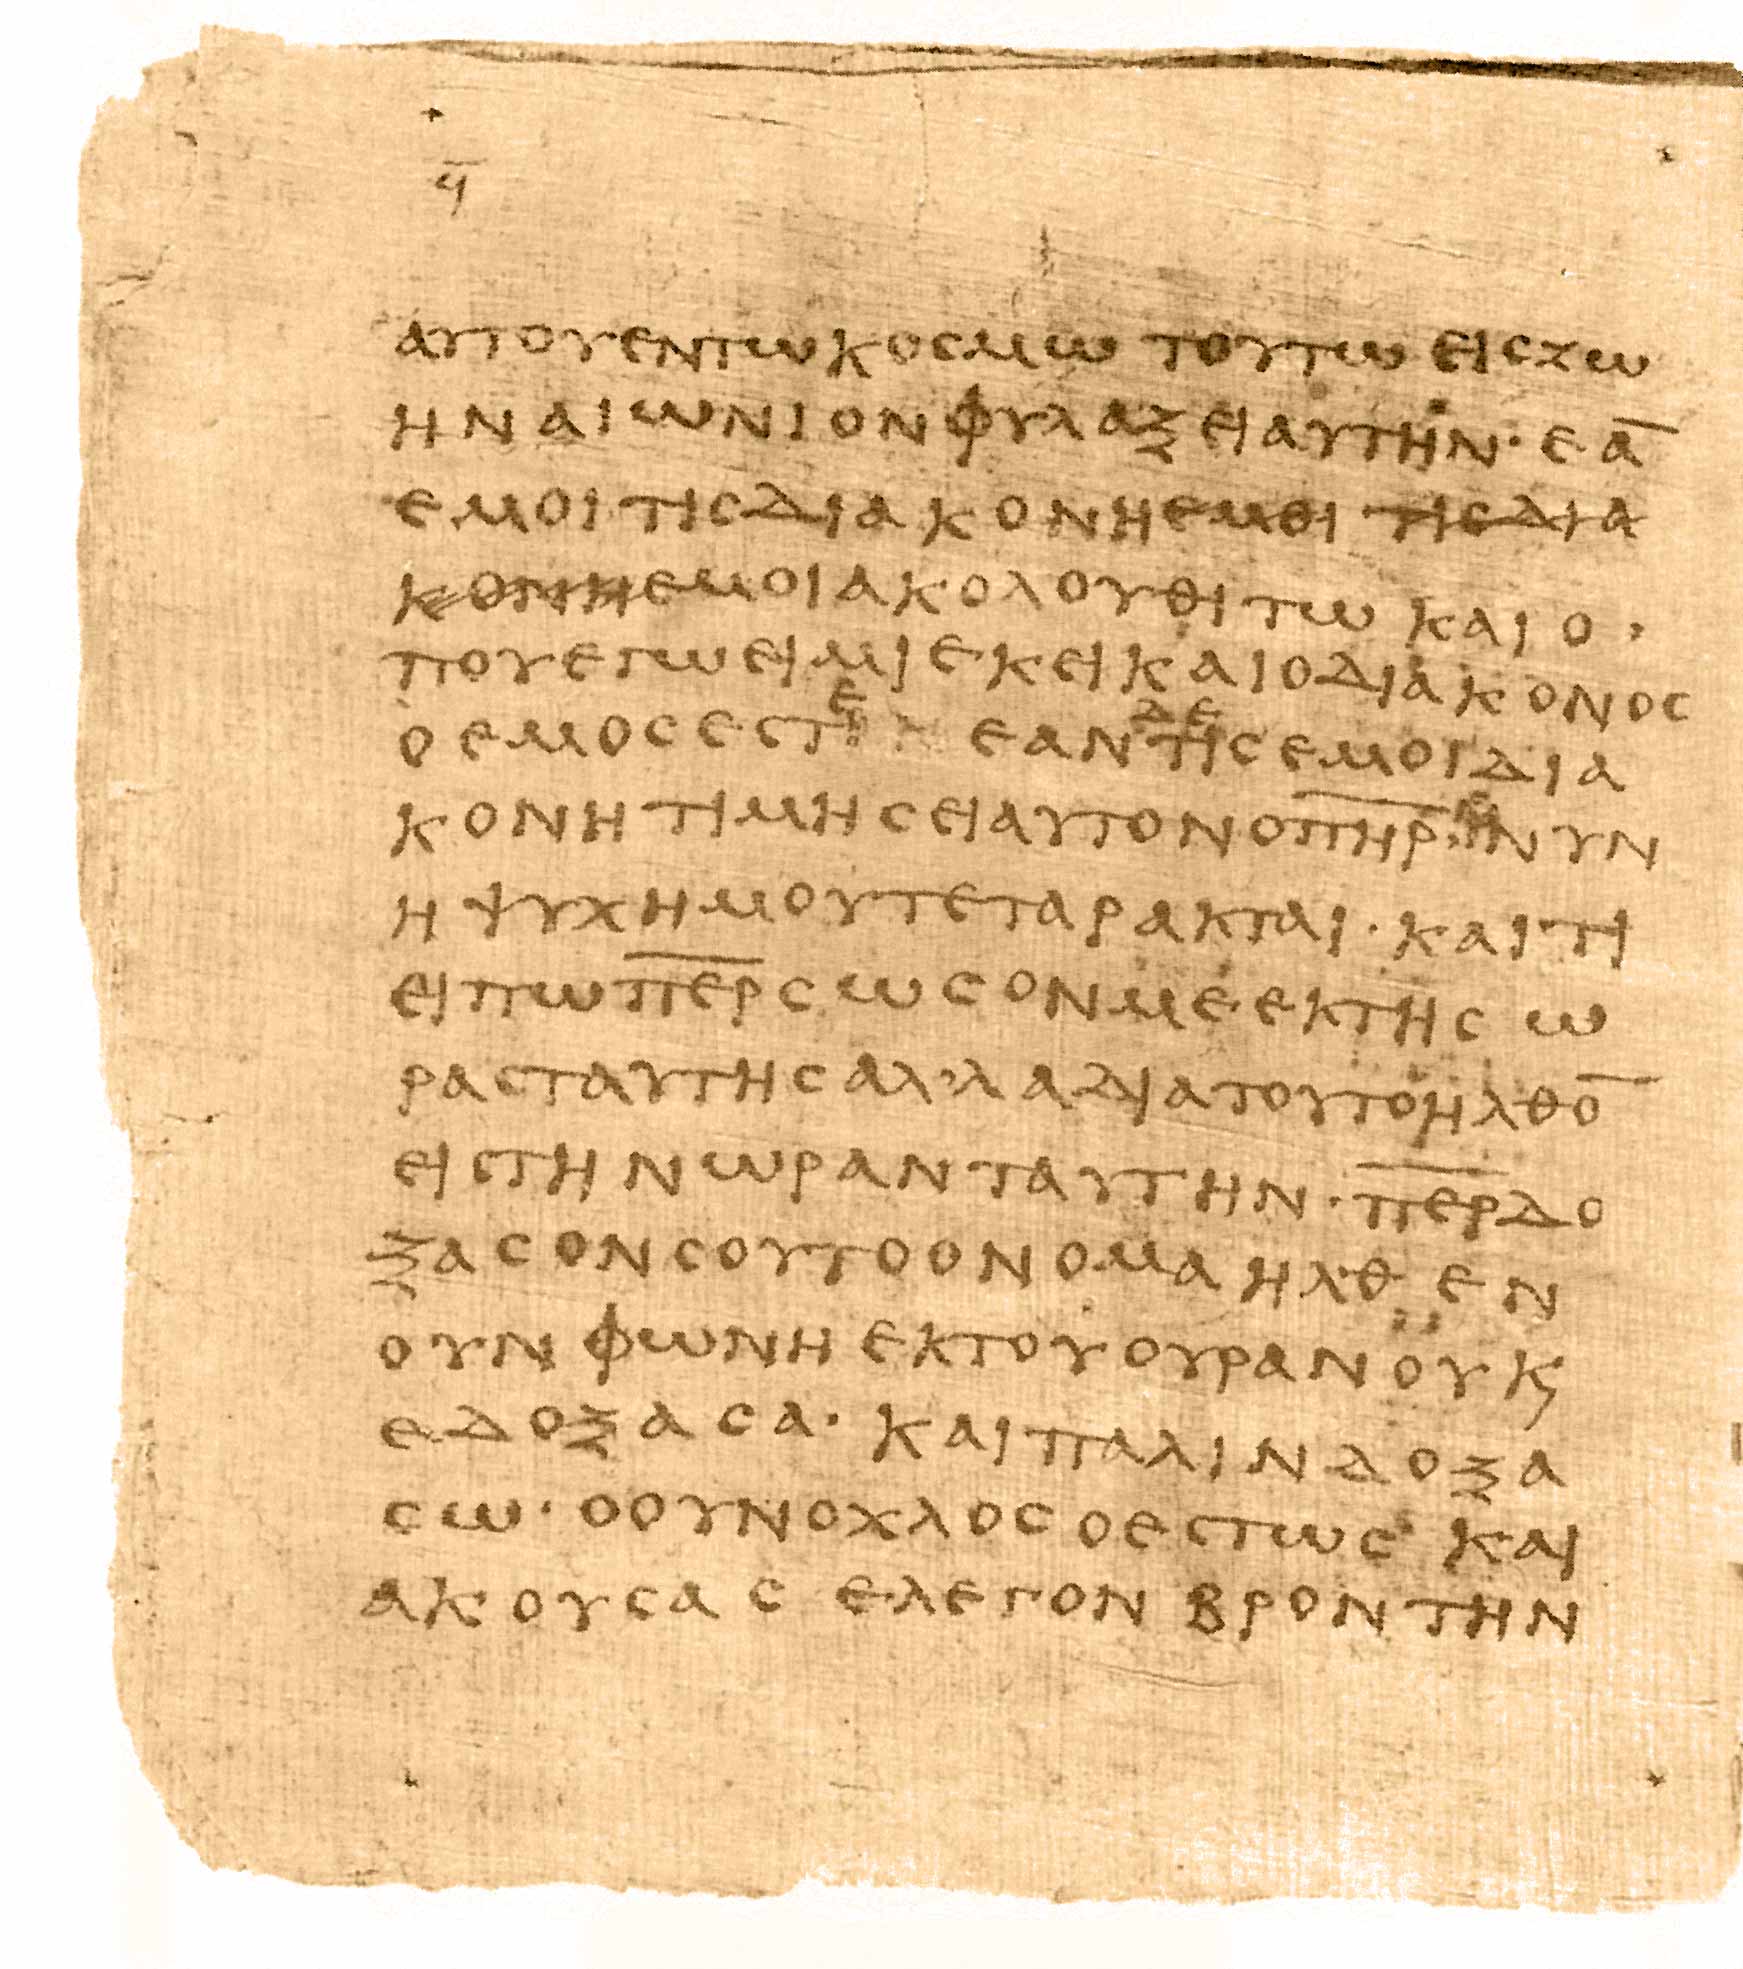 ϥ̅
ΑΥΤΟΥΕΝΤΩΚΟΣΜΩ ΤΟΥΤΩ ΕΙΣΖΩ
ΗΝΑΙΩΝΙΟΝΦΥΛΑΞΕΙΑΥΤΗΝ· ΕΑ̅
ΕΜΟΙΤΙΣΔΙΑΚΟΝΗΕΜΟΙΤΙΣΔΙΑ
ΚΟΝΗΕΜΟΙΑΚΟΛΟΥΘΙΤΩ ΚΑΙΟ
ΠΟΥΕΓΩΕΙΜΙΕΚΕΙΚΑΙΟΔΙΑΚΟΝΟΣ
ΟΕΜΟΣΕΣΤΕ ΕΑΝΔΕΤΙΣΕΜΟΙΔΙΑ
ΚΟΝΗΤΙΜΗΣΕΙΑΥΤΟΝΟΠ̅Η̅Ρ̅·ΝΥΝ
ΗΨΥΧΗΜΟΥΤΕΤΑΡΑΚΤΑΙ· ΚΑΙΤΙ
ΕΙΠΩΠ̅Ε̅Ρ̅ΣΩΣΟΝΜΕΕΚΤΗΣ Ω
ΡΑΣΤΑΥΤΗΣΑΛ'ΛΑΔΙΑΤΟΥΤΟΗΛΘΟ̅
ΕΙΣΤΗΝΩΡΑΝΤΑΥΤΗΝ· Π̅Ε̅Ρ̅ΔΟ
ΞΑΣΟΝΣΟΥΤΟΟΝΟΜΑΗΛΘΕΝ
ΟΥΝΦΩΝΗΕΚΤΟΥΟΥΡΑΝΟΥΚ
ΕΔΟΞΑΣΑ· ΚΑΙΠΑΛΙΝΔΟΞΑ
ΣΩ· ΟΟΥΝΟΧΛΟΣΟΕΣΤΩΣ ΚΑΙ
ΑΚΟΥΣΑΣ ΕΛΕΓΟΝ ΒΡΟΝΤΗΝ